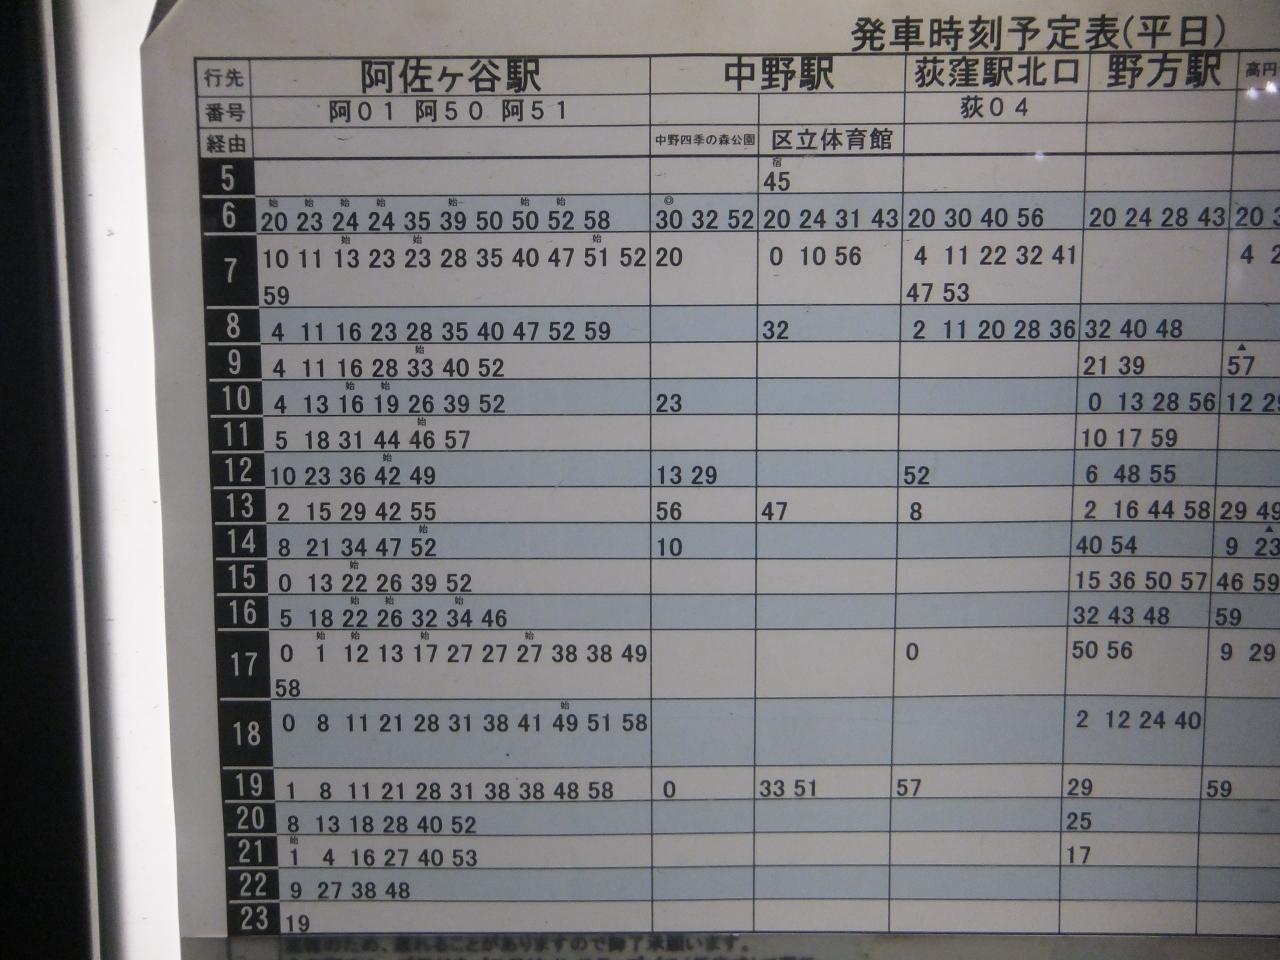 発車時刻予定表(平日)
行先 阿佐ヶ谷駅 中野駅 荻窪駅北口 野方駅 高円
番号 阿01 阿50 阿51 荻04
経由 中野四季の森公園 区立体育館
宿
5 45
始 始 始 始 始 始 始 ◎
6 20 23 24 24 35 39 50 50 52 58 30 32 52 20 24 31 43 20 30 40 56 20 24 28 43 20
始 始 始
7 10 11 13 23 23 28 35 40 47 51 52 20 0 10 56 4 11 22 32 41 4
59 47 53
8 4 11 16 23 28 35 40 47 52 59 32 2 11 20 28 36 32 40 48
始 ▲
9 4 11 16 28 33 40 52 21 39 57
始 始
10 4 13 16 19 26 39 52 23 0 13 28 56 12 29
始
11 5 18 31 44 46 57 10 17 59
始
12 10 23 36 42 49 13 29 52 6 48 55
13 2 15 29 42 55 56 47 8 2 16 44 58 29 49
始 ▲
14 8 21 34 47 52 10 40 54 9 23
始
15 0 13 22 26 39 52 15 36 50 57 46 59
始 始 始
16 5 18 22 26 32 34 46 32 43 48 59
始 始 始 始
17 0 1 12 13 17 27 27 27 38 38 49 0 50 56 9 29
58
始
18 0 8 11 21 28 31 38 41 49 51 58 2 12 24 40
19 1 8 11 21 28 31 38 38 48 58 0 33 51 57 29 59
20 8 13 18 28 40 52 25
始
21 1 4 16 27 40 53 17
22 9 27 38 48
23 19
遅れることがありますので御了承願います。